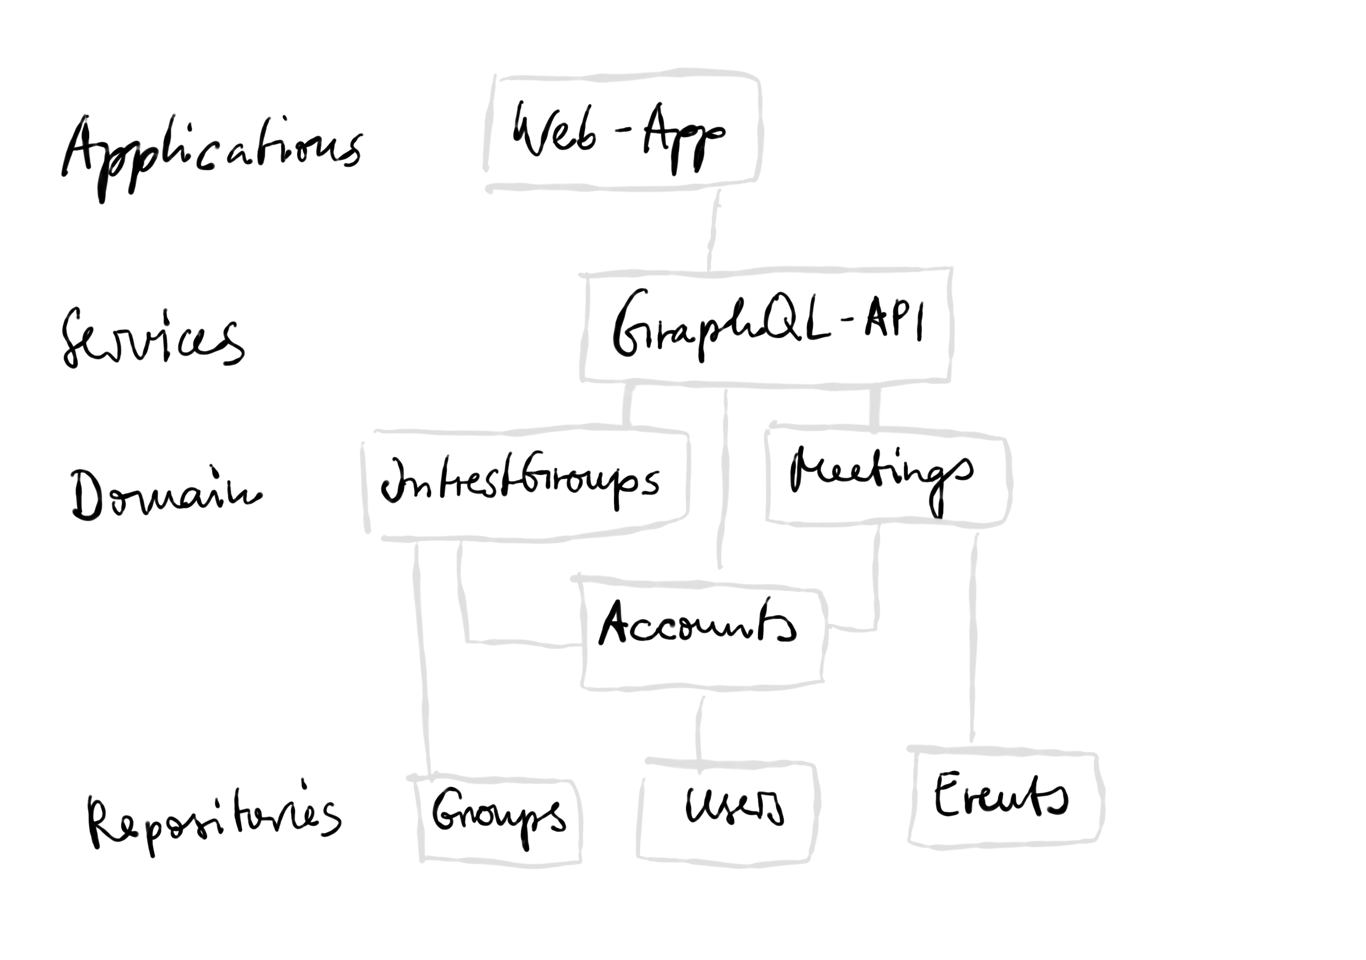 Applications
Web-App
Services
GraphQL-API
Domain
IntrestGroups
Meetings
Accounts
Repositories
Groups
Users
Events